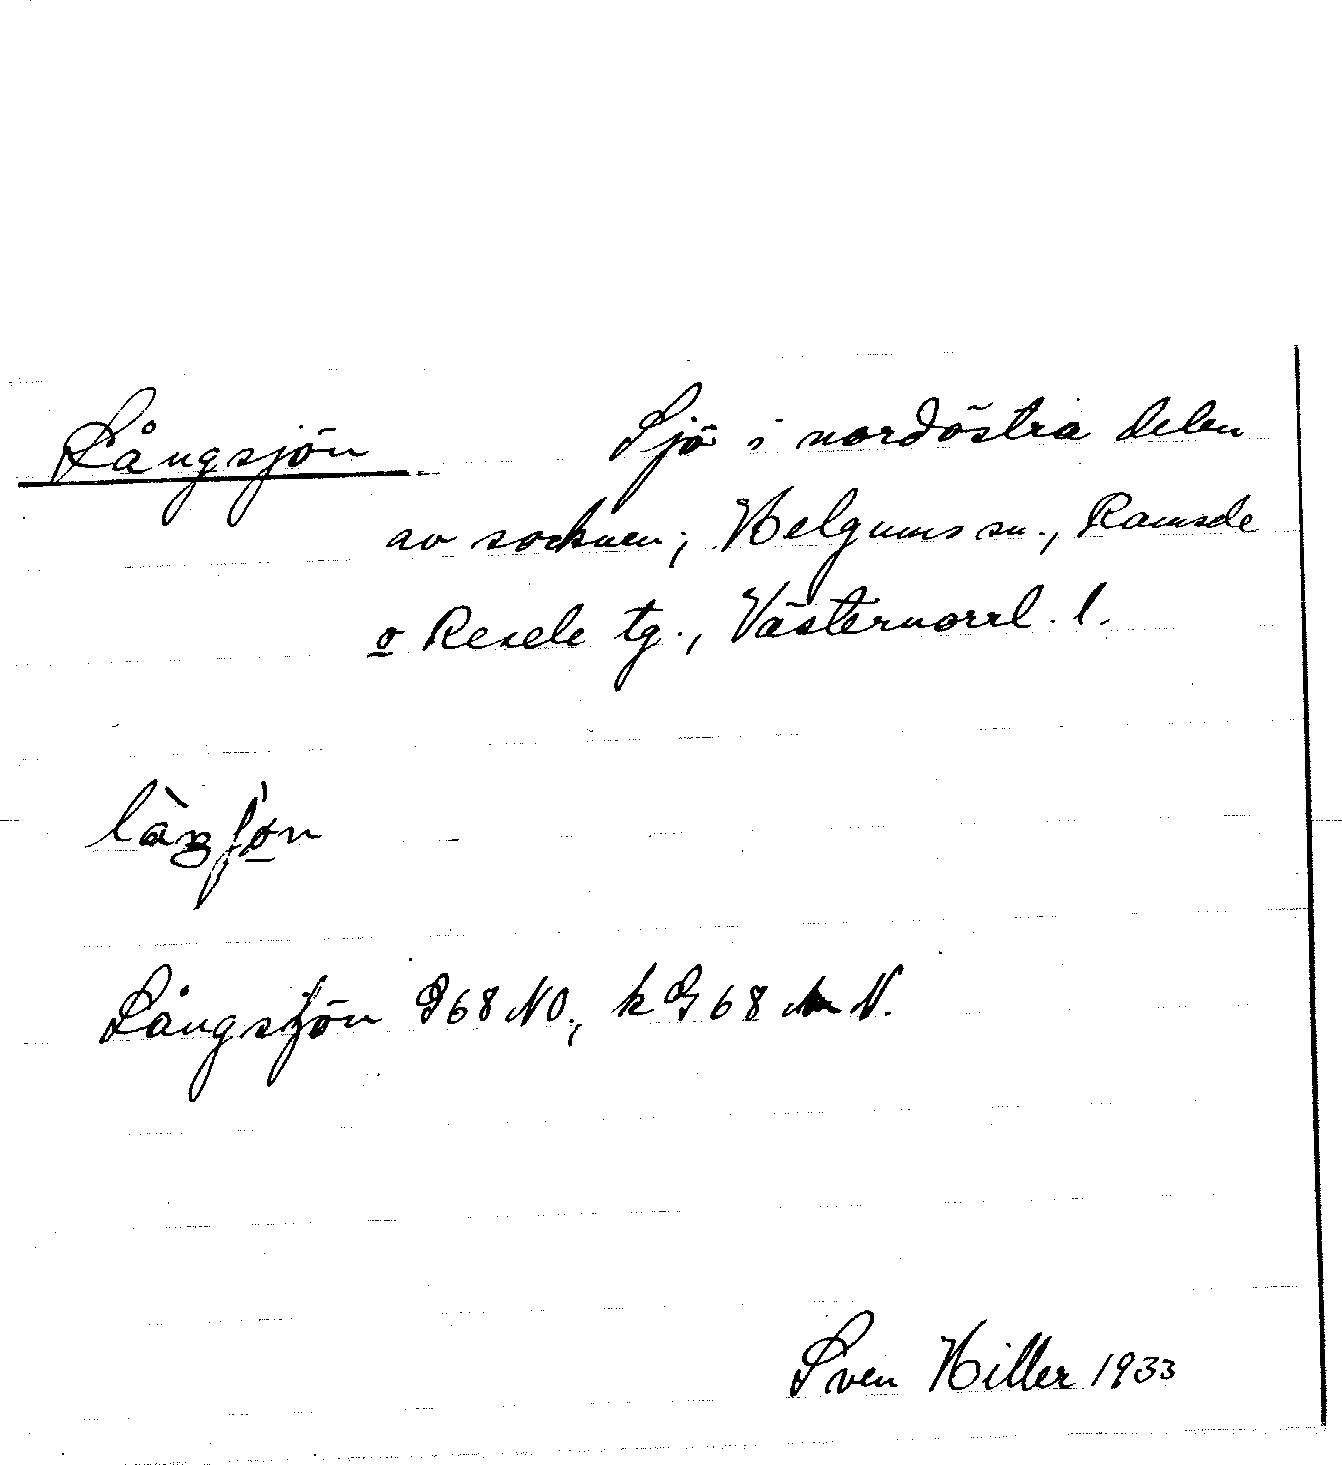 Långsjön. Sjö i nordöstra delen
av socknen; Helgums sn., Ramsele
o Resele tg., Västernorrl. l.
Långsjön G68 NO., k G 68 N.
Sven Hiller 1933